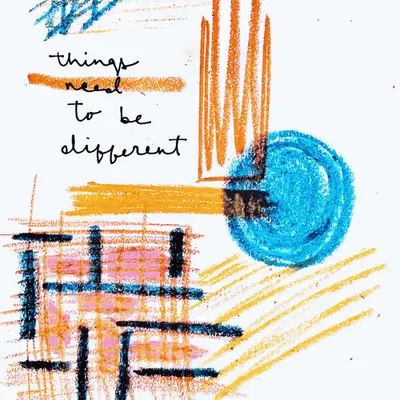 things
need
to be
different